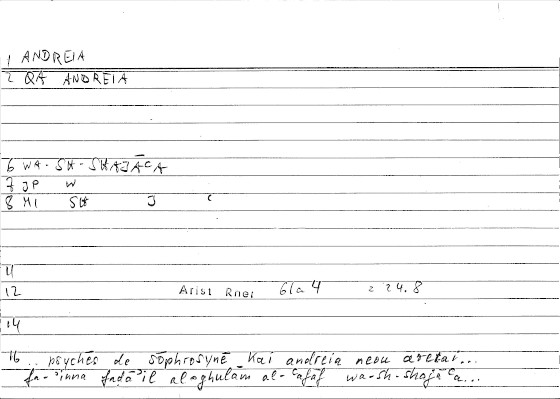 1 ANDREIA
2 QA ANDREIA
6 WA-SH-SHAJĀʿA
7 JP W
8 MI SH J ʿ
11
12 Arist Rhet 61a 4 = 24.8
14
16 .. psychēs de sōphrosynē kai andreia neou aretai...
fa-ʾinna faḍāʾil al-ghulām al-ʿafāf wa-sh-shajāʿa...